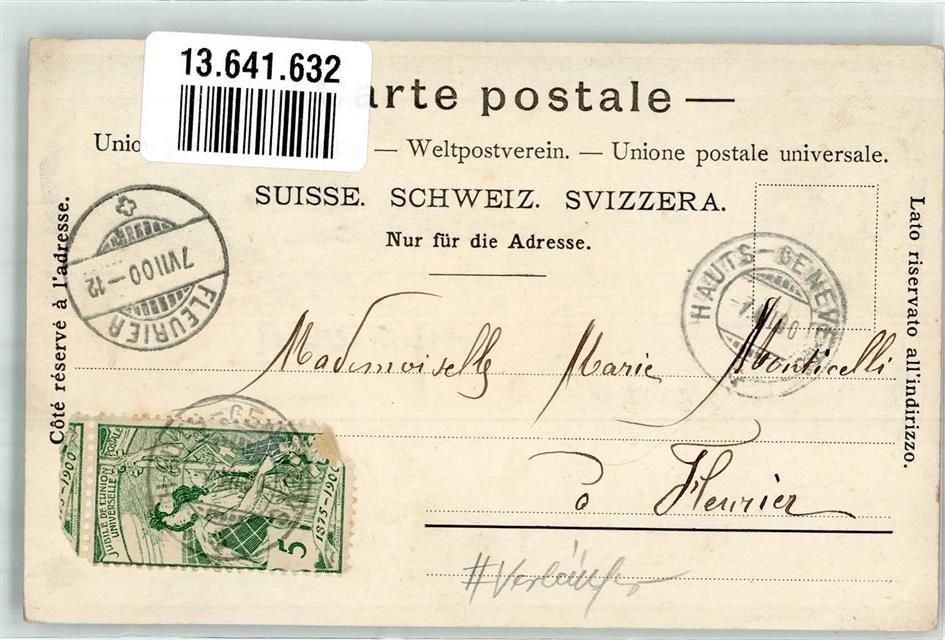 13.641.632
arte postale —
Unio — Weltpostverein. — Unione postale universale.
SUISSE. SCHWEIZ. SVIZZERA.
Nur für die Adresse.
Côté réservé à l'adresse.
Lato riservato all'indirizzo.
7 VII 00 – 12
FLEURIER
HAUTS – GENEVEYS
Mademoiselle Marie Monticelli
à Fleurier
JUBILÉ DE L'UNION POSTALE
UNIVERSELLE
1875-1900
5
#Verläufer